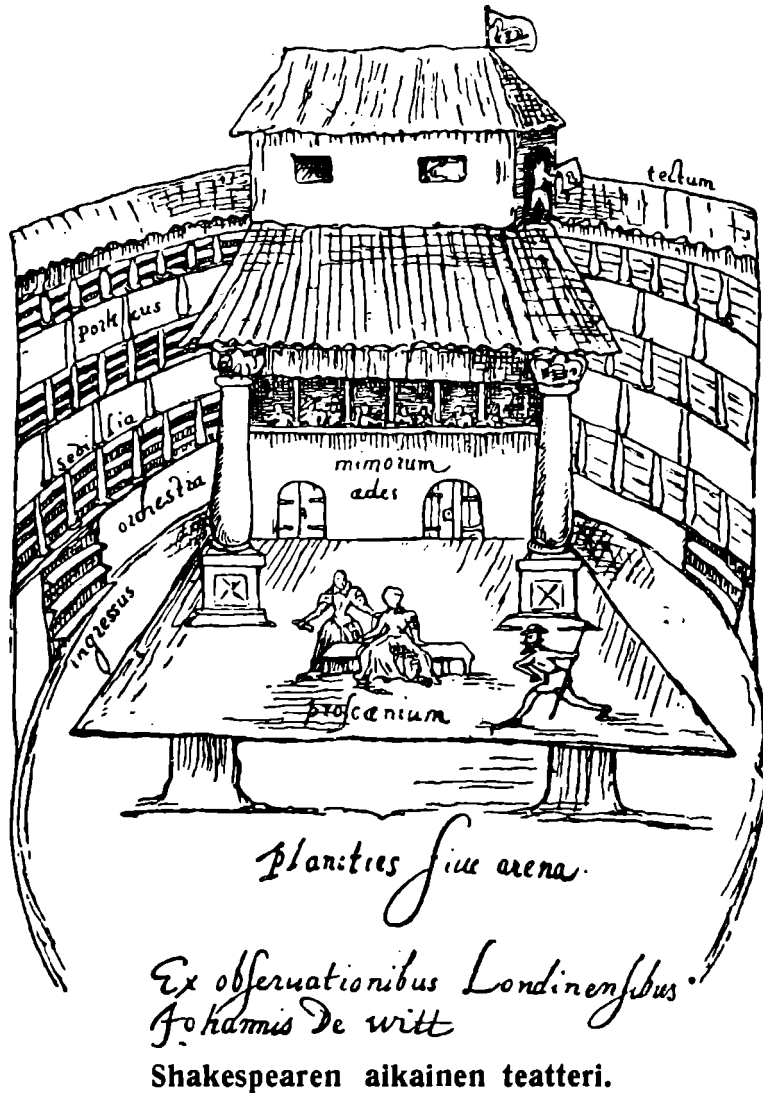 tectum
porticus
sedilia
orchestra
mimorum
ædes
ingressus
proſcænium
planities ſiue arena.
Ex obſeruationibus Londinenſibus
Johannis De witt
Shakespearen aikainen teatteri.